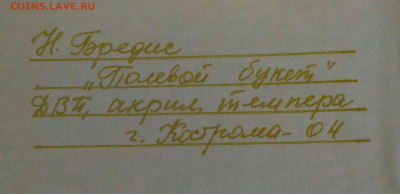 COINS.LAVE.RU
Н. Бредис
„Полевой букет“
ДВП, акрил, темпера
г. Кострома-04